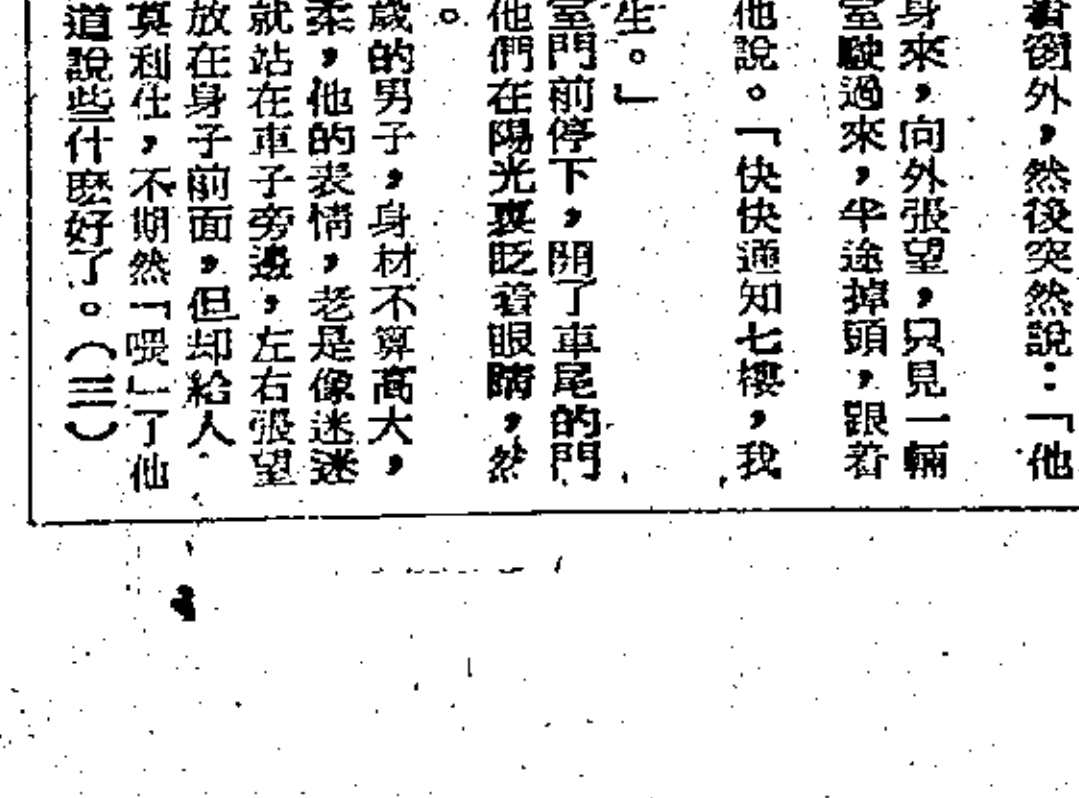 着窗外，然後突然說：「他
身來，向外張望，只見一輛
室駛過來，半途掉頭，跟着
他說。「快快通知七樓，我
生。」
室門前停下，開了車尾的門
他們在陽光裏眨着眼睛，然
。
歲的男子，身材不算高大，
柔，他的表情，老是像迷迷
就站在車子旁邊，左右張望
放在身子前面，但却給人
莫利仕，不期然「喂」了他
道說些什麽好了。（三）